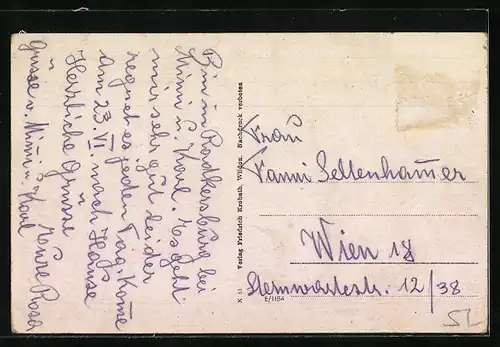 Bin in Radkersburg bei
Mimi u. Karl. Es geht
mir sehr gut leider
regnet es jeden Tag. Kome
am 23. VI. nach Hause
Herzliche Grüsse
Eure Rosa
Grüsse v. Mimi u. Karl
X 51 Verlag Friedrich Krobath, Wildon. Nachdruck verboten
E/1184
Frau
Fanni Sellenhamer
Wien 18
Sternwartestr. 12/38